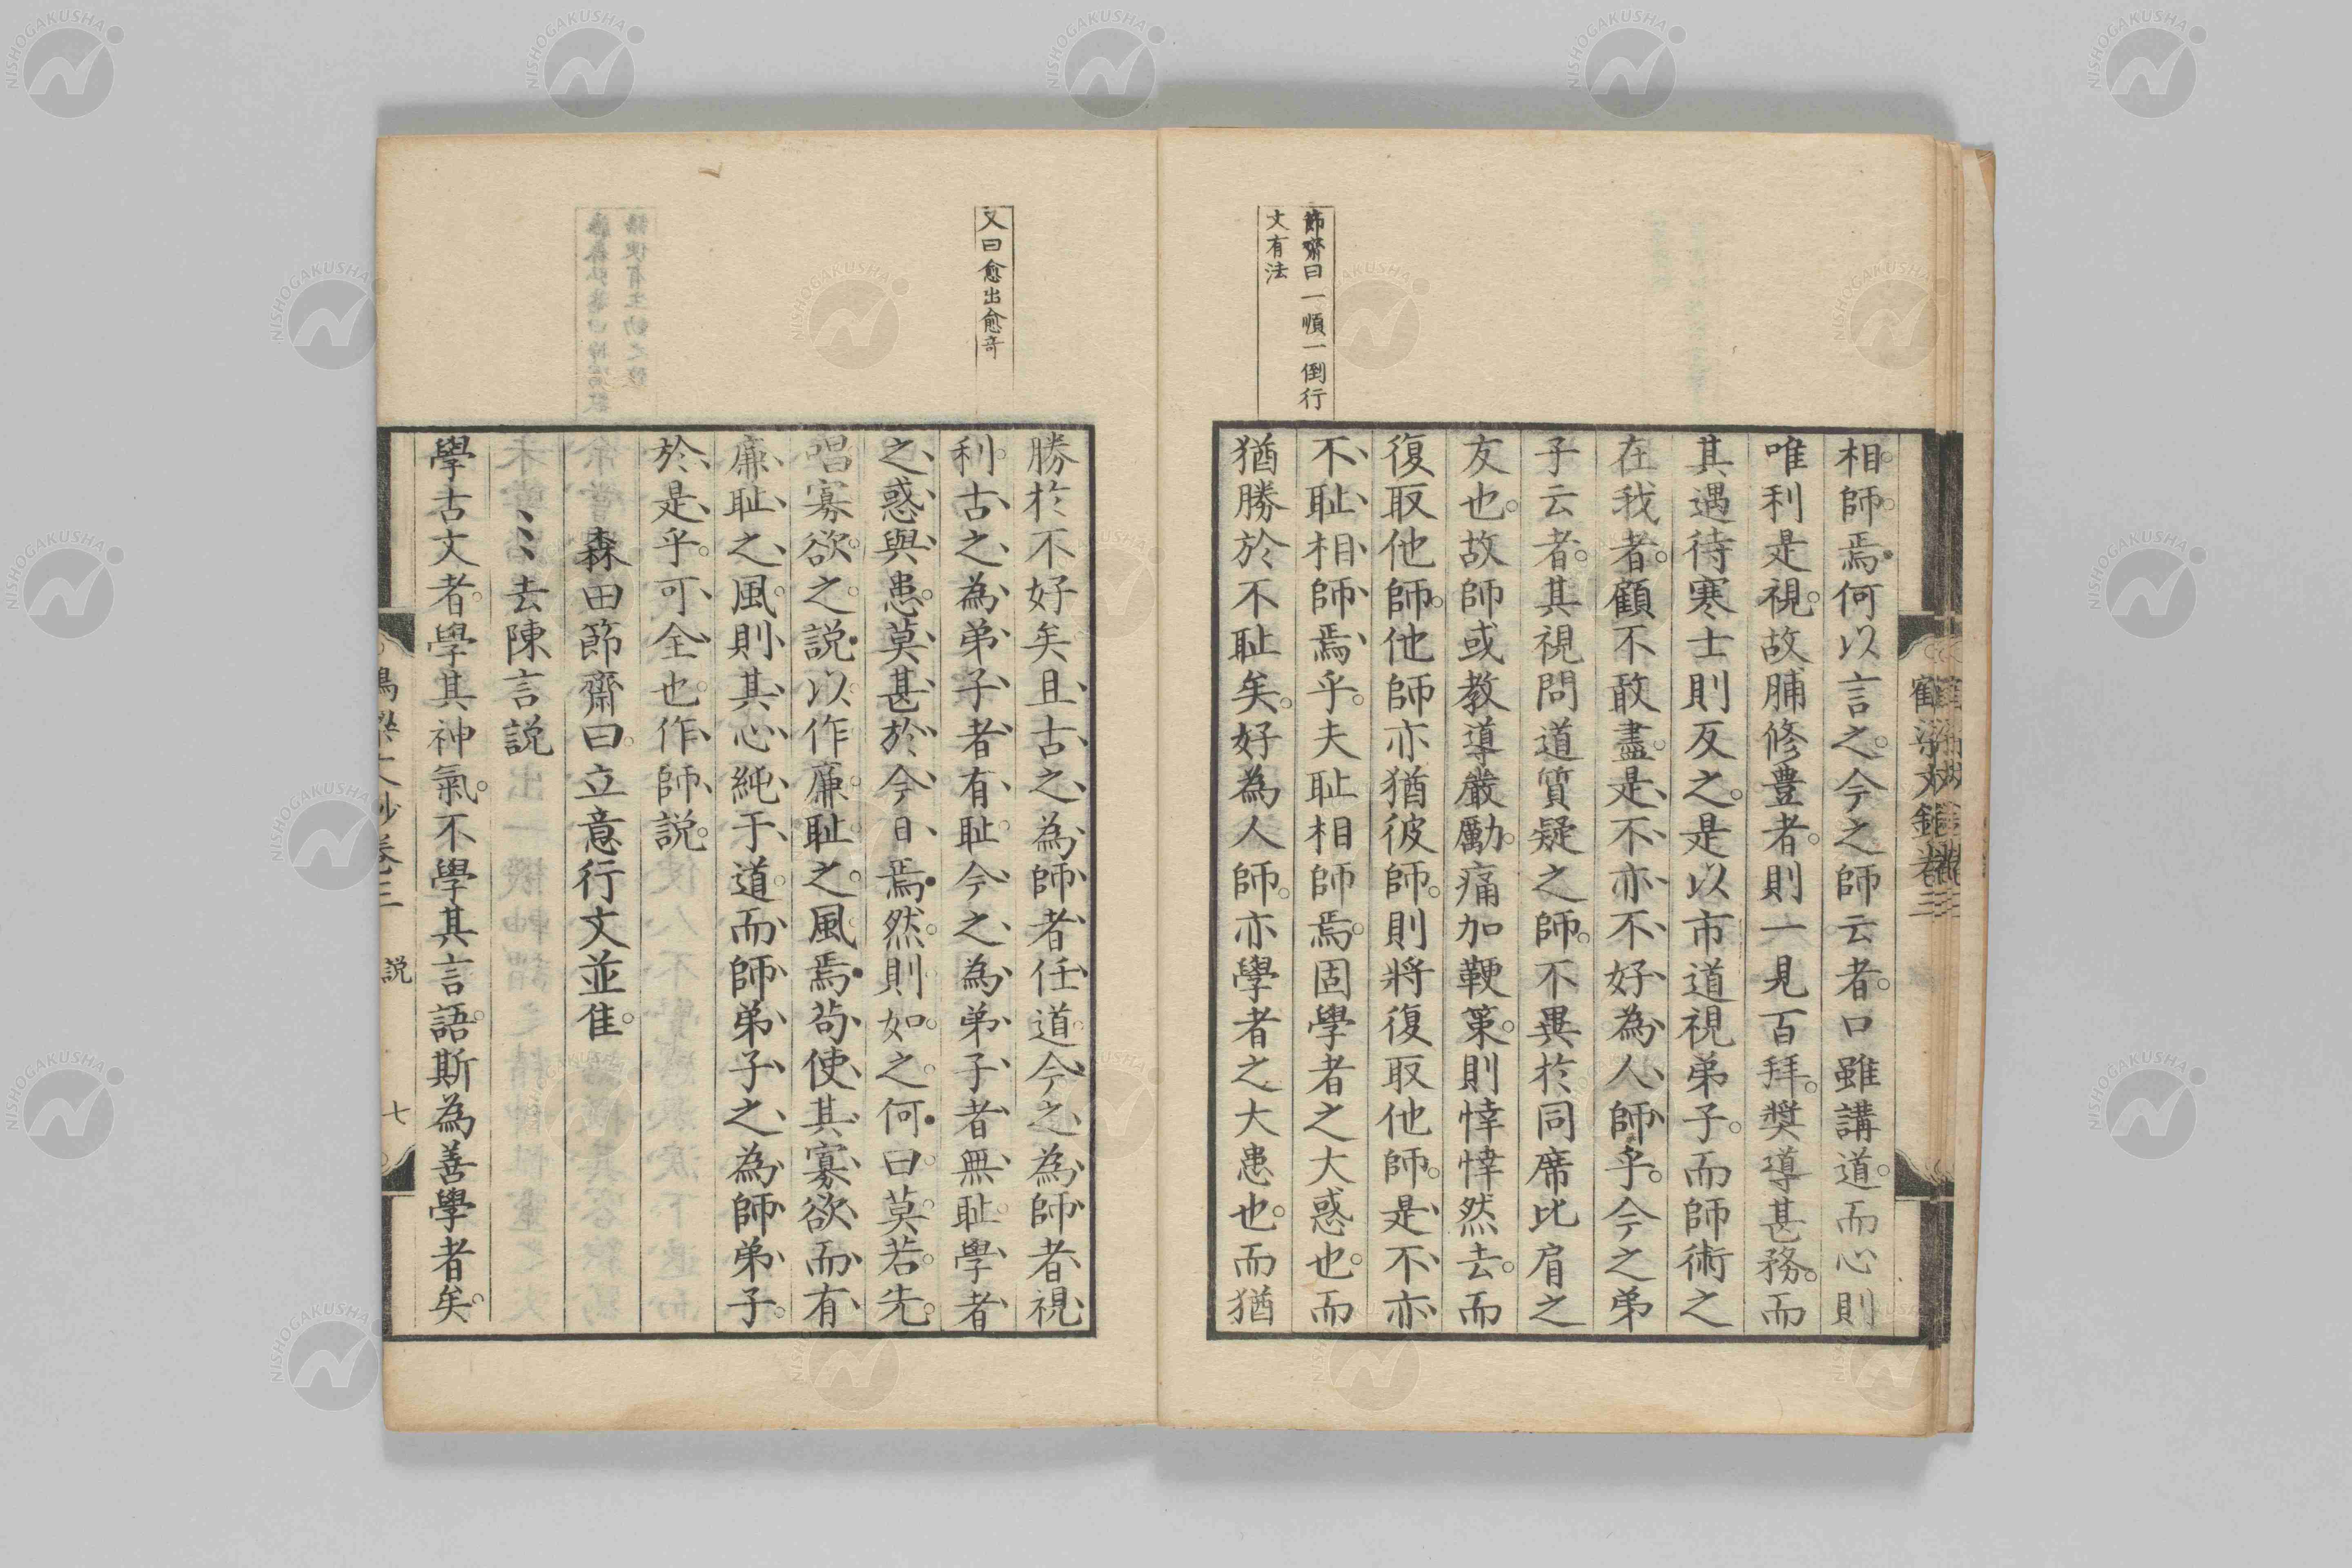 節齋曰一順一倒行
文有法
相師焉何以言之今之師云者口雖講道而心則
唯利是視故脯修豊者則一見百拜奬導甚務而
其遇待寒士則反之是以市道視弟子而師術之
在我者顧不敢盡是不亦不好為人師乎今之弟
子云者其視問道質疑之師不異於同席比肩之
友也故師或教導嚴勵痛加鞭策則悻悻然去而
復取他師他師亦猶彼師則將復取他師是不亦
不耻相師焉乎夫耻相師焉固學者之大惑也而
猶勝於不耻矣好為人師亦學者之大患也而猶
又曰愈出愈奇
勝於不好矣且古之為師者任道今之為師者視
利古之為弟子者有耻今之為弟子者無耻學者
之惑與患莫甚於今日焉然則如之何曰莫若先
唱寡欲之説以作廉耻之風焉苟使其寡欲而有
廉耻之風則其心純于道而師弟子之為師弟子
於是乎可全也作師説
森田節齋曰立意行文並佳
去陳言説
學古文者學其神氣不學其言語斯為善學者矣
説
七
NISHOGAKUSHA